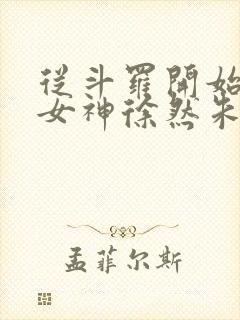 從斗羅開始
女神徐然朱
孟菲尔斯